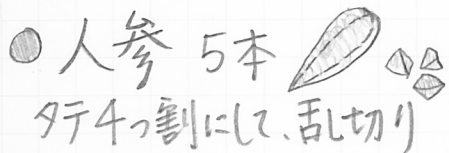 ● 人参 5本
タテ4つ割にして、乱切り